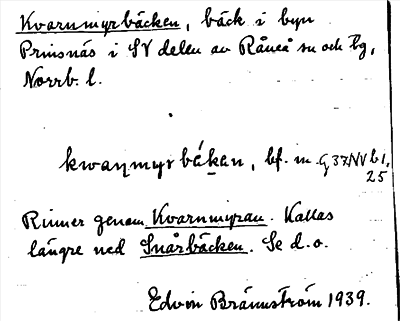 Kvarnmyrbäcken, bäck i byn
Prinsnäs i SV delen av Råneå sn och tg,
Norrb. l.
kwaŋmyrbákan, bf. m. G 37 NV b 1,
25
Rinner genom Kvarnmyran. Kallas
längre ned Snårbäcken. Se d.o.
Edvin Brännström 1939.